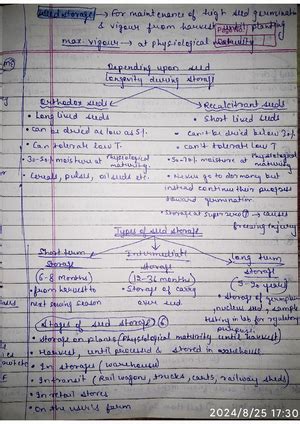 Seed storage → For maintenance of high seed germination
& vigour from harvest planting
max. vigour → at physiological maturity
Depending upon seed
longevity during storage
Orthodox seeds
Recalcitrant seeds
• Long lived seeds
• Short lived seeds
• Can be dried as low as 5%.
• Can't be dried below
• Can tolerate low T.
• can't tolerate low T
moisture at physiological maturity.
moisture at physiological maturity.
Cereals, pulses, oil seeds etc.
• Never go to dormancy but
instead continue their progress
toward germination.
• Storage at → causes
freezing injury
Types of seed storage
Short term
storage
(6-8 months)
• from harvest to
next sowing season
Intermediate
storage
(12-36 months)
• Storage of carry
over seed
long term
storage
• storage of germplasm
nucleus seed, sample
testing in lab for
purpose.
Stages of seed storage (6)
• Storage on plants (physiological maturity until harvest)
• Harvest, until processed & stored in warehouse
• In storage (warehouse)
• In transit (Rail wagons, trucks, carts, railway sheds)
• In retail stores
• On the user's farm
2024/8/25 17:30